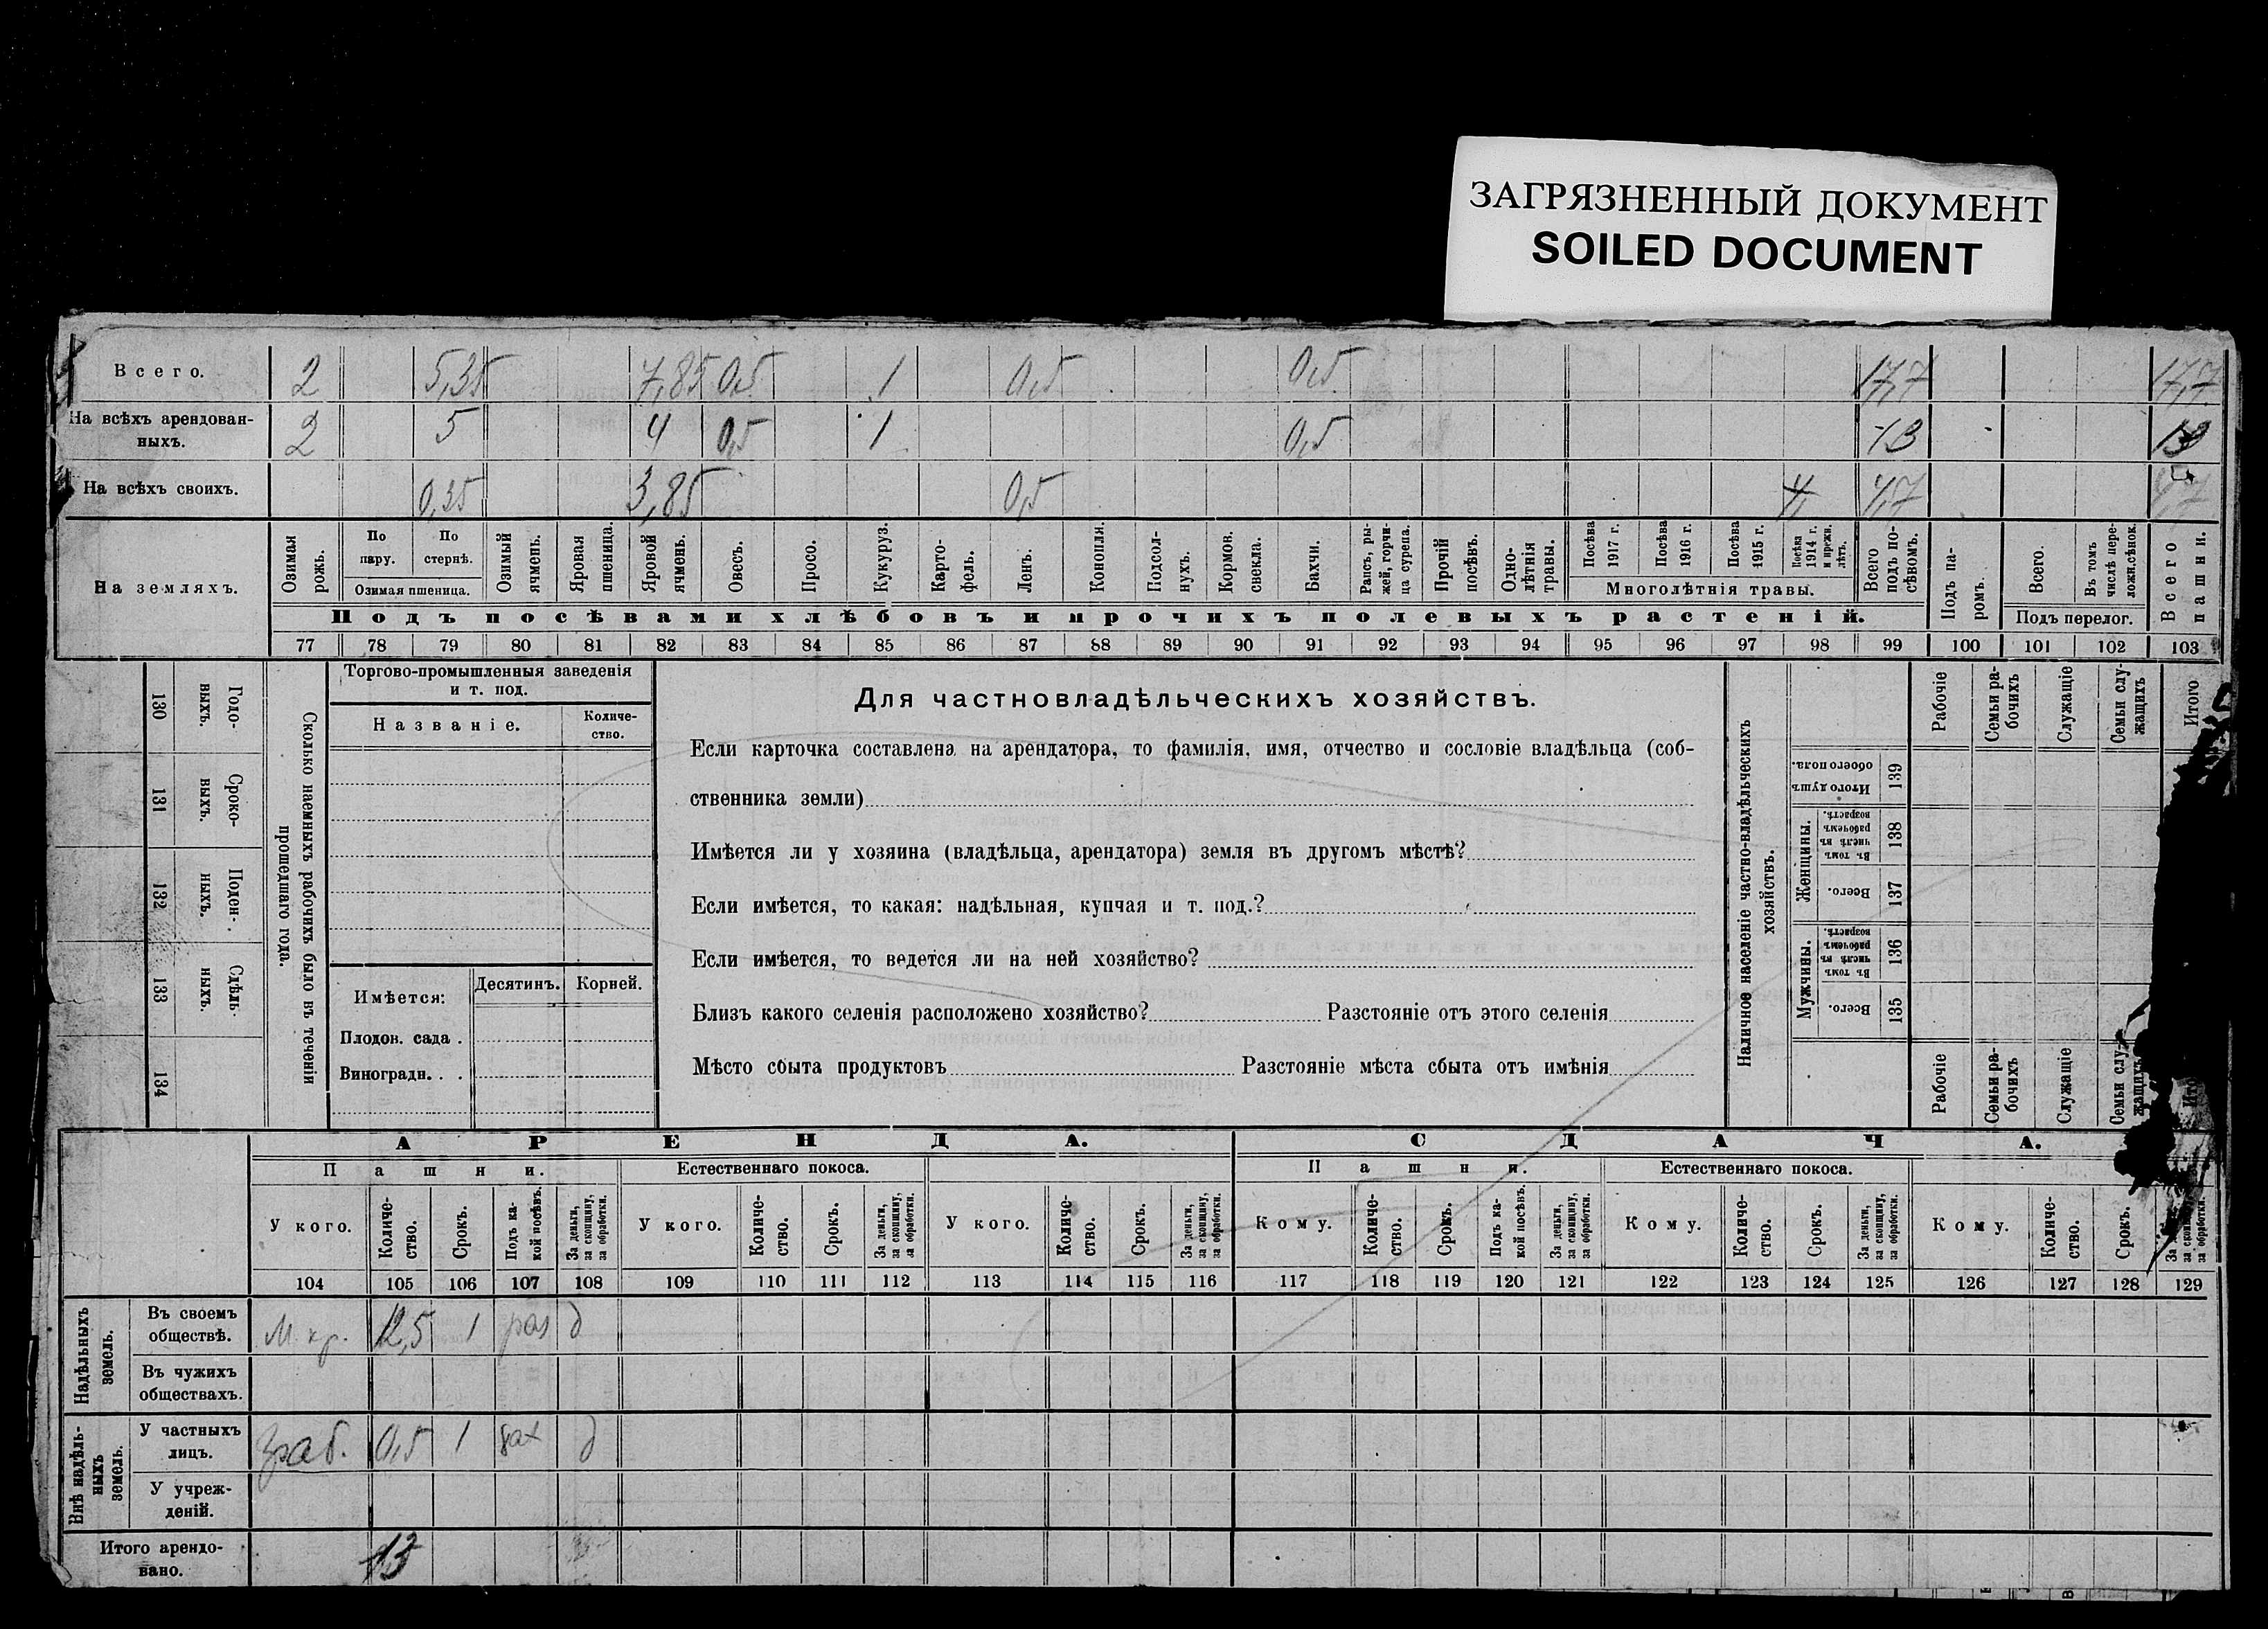 ЗАГРЯЗНЕННЫЙ ДОКУМЕНТ
SOILED DOCUMENT
Всего. 2 5,35 7,85 0,5 1 0,5 0,5 17,7 17,7
На всѣхъ арендован-
ныхъ. 2 5 4 0,5 1 0,5 13 13
На всѣхъ своихъ. 0,35 3,85 0,5 4, 4,7 4,7
На земляхъ.
Озимая рожь.
По пару.
По стернѣ.
Озимая пшеница.
Озимый ячмень.
Яровая пшеница.
Яровой ячмень.
Овесъ.
Просо.
Кукуруз.
Карто-
фель.
Ленъ.
Конопля.
Подсол-
нухъ.
Кормов. свекла.
Бахчи.
Рапсъ, ры-
жей, горчи-
ца сурепа.
Прочій посѣвъ.
Одно-
лѣтнія травы.
Посѣва 1917 г.
Посѣва 1916 г.
Посѣва 1915 г.
Посѣва 1914 г. и прежн. лѣтъ.
Многолѣтнія травы.
Всего подъ по-
сѣвомъ.
Подъ па-
ромъ.
Всего.
Въ томъ числѣ пере-
ложн.сѣнок.
Подъ перелог.
Всего пашни.
Подъ посѣвами хлѣбовъ и прочихъ полевыхъ растеній.
77 78 79 80 81 82 83 84 85 86 87 88 89 90 91 92 93 94 95 96 97 98 99 100 101 102 103
130 Годо-
выхъ.
131 Сроко-
ныхъ.
132 Поден-
ныхъ.
133 Сдѣль-
ныхъ.
134
Сколько наемныхъ рабочихъ было въ теченіи
прошедшаго года.
Торгово-промышленныя заведенія
и т. под.
Названіе.
Количе-
ство.
Имѣется:
Десятинъ.
Корней.
Плодов. сада .
Виноградн. . .
Для частновладѣльческихъ хозяйствъ.
Если карточка составлена на арендатора, то фамилія, имя, отчество и сословіе владѣльца (соб-
ственника земли)
Имѣется ли у хозяина (владѣльца, арендатора) земля въ другомъ мѣстѣ?
Если имѣется, то какая: надѣльная, купчая и т. под.?
Если имѣется, то ведется ли на ней хозяйство?
Близъ какого селенія расположено хозяйство? Разстояніе отъ этого селенія
Мѣсто сбыта продуктовъ Разстояніе мѣста сбыта отъ имѣнія
Наличное населеніе частно-владѣльческихъ
хозяйствъ.
Рабочіе
Семьи ра-
бочихъ
Служащіе
Семьи слу-
жащихъ
Итого
Итого душъ обоего пола. 139
Женщины.
Въ томъ числѣ въ рабочемъ возрастѣ. 138
Всего. 137
Мужчины.
Въ томъ числѣ въ рабочемъ возрастѣ. 136
Всего. 135
Рабочіе
Семьи ра-
бочихъ
Служащіе
Семьи слу-
жащихъ
АРЕНДА. СДАЧА.
Пашни. Естественнаго покоса. Пашни. Естественнаго покоса.
У кого.
Количе-
ство.
Срокъ.
Подъ ка-
кой посѣвъ.
За деньги, за скопщину, за обработки.
У кого.
Количе-
ство.
Срокъ.
За деньги, за скопщину, за обработки.
У кого.
Количе-
ство.
Срокъ.
За деньги, за скопщину, за обработки.
Кому.
Количе-
ство.
Срокъ.
Подъ ка-
кой посѣвъ.
За деньги, за скопщину, за обработки.
Кому.
Количе-
ство.
Срокъ.
За деньги, за скопщину, за обработки.
Кому.
Количе-
ство.
Срокъ.
За за скопщину, за обработки.
104 105 106 107 108 109 110 111 112 113 114 115 116 117 118 119 120 121 122 123 124 125 126 127 128 129
Надѣльныхъ земель.
Въ своемъ
обществѣ. М. кр. 12,5 1 раз д
Въ чужихъ
обществахъ.
Внѣ надѣль-
ныхъ земель.
У частныхъ
лицъ. 0,5 1 бах д
У учреж-
деній.
Итого арендо-
вано. 13